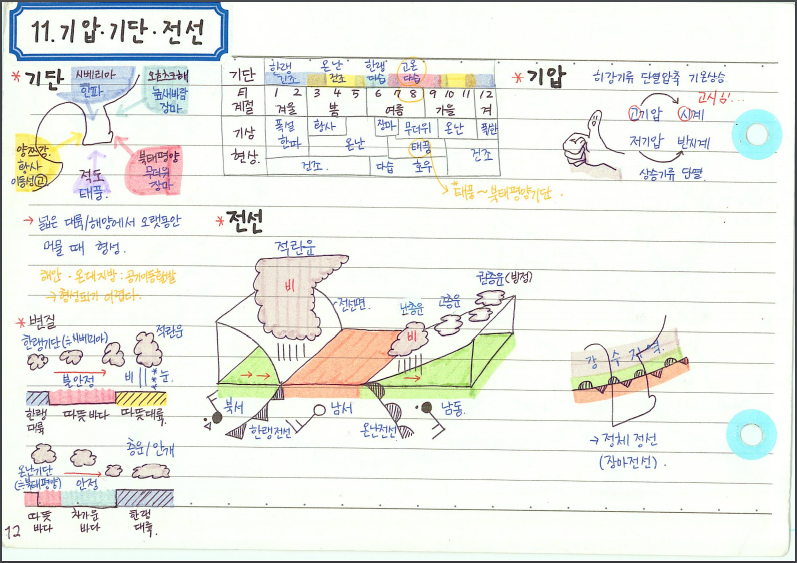 11. 기압·기단·전선
* 기단
시베리아
한파
오호츠크해
높새바람
장마
양쯔강
황사
이동성(고)
적도
태풍.
북태평양
무더위
장마
→ 넓은 대륙/해양에서 오랫동안
머물 때 형성.
해안·온대지방: 공기이동활발
→ 형성되기 어렵다.
기단
한랭 건조
온난 건조
한랭 다습
고온 다습
월
계절
1 2 3 4 5 6 7 8 9 10 11 12
겨울 봄 여름 가을 겨
기상
현상.
폭설
한파
황사
온난
장마
무더위
태풍
온난
폭한
건조.
다습
호우
건조
*태풍~북태평양기단.
* 기압
하강기류 단열압축 기온상승
고시히...
고기압 시계
저기압 반시계
상승기류 단열.
* 전선
적란운
비
전선면.
난층운
비
고층운
권층운(빙정)
북서
한랭전선
남서
온난전선
남동.
강 수 지 역.
→ 정체 전선
(장마전선).
* 변질
한랭기단(≒시베리아)
적란운
불안정
비
눈.
한랭
대륙
따뜻 바다
따뜻대륙.
층운/안개
온난기단
(≒북태평양)
안정
따뜻
바다
차가운
바다
한랭
대륙.
12